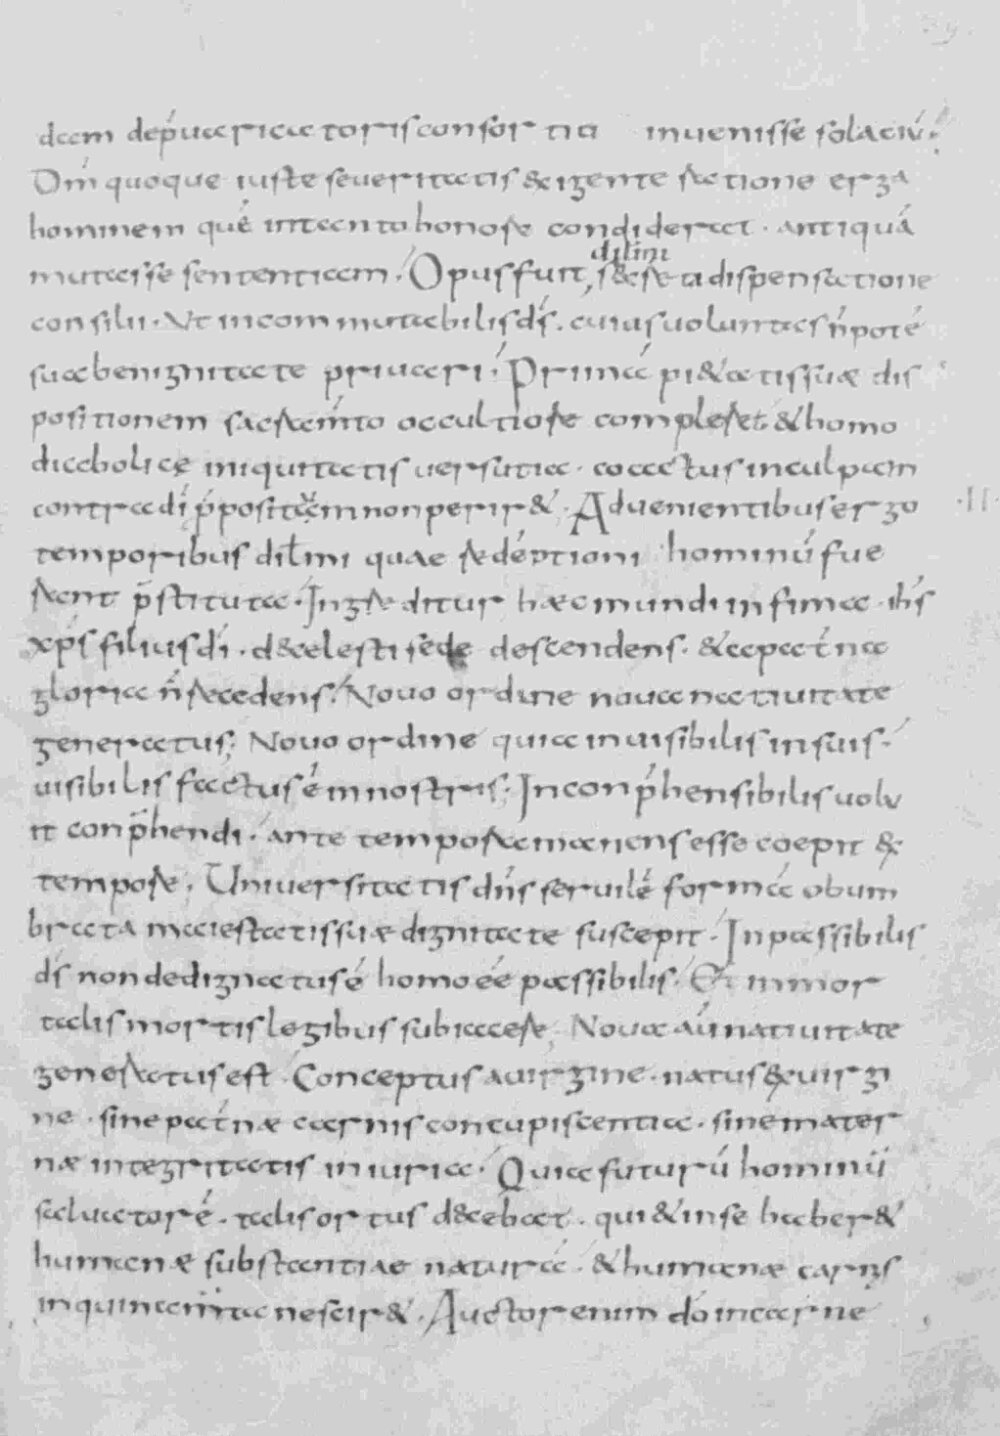 dam deṕuaricatoris consortia inuenisse solaciū.
Dm̄ quoque iuste seueritatis &igente ratione erga
hominem quē in tanto honore condiderat. antiquā
mutasse sententiam. Opus fuit, dilmi secreta dispensatione
consilii. Ut incommutabilis d̄s. cuius uoluntas n̄ poté
sua benignitate priuari. Primā pi&atis suæ dis
positionem sacram̄to occultiore compleret. & homo
diabolicę iniquitatis uersutia. coactus in culpam
contra dī p̄positum non perir&. Aduenientibus ergo
.II.
temporibus dil̄mi quae redēptioni hominū fue
rant p̄stituta. Ingreditur hæc mundi infima. ih̄s
xp̄s filius dī. d&celesti sede descendens. & a pat̄na
gloria n̄ recedens. Nouo ordine noua natiuitate
generatus; Nouo ordine quia inuisibilis in suis.
uisibilis factus ē in nostris. Inconp̄hensibilis uolu
it conp̄hendi. ante tempora manens esse coepit &
tempore. Uniuersitatis dn̄s seruilē formā obum
brata maiestatis suæ dignitate suscepit. Inpassibilis
d̄s non dedignatus ē homo eē passibilis. Et inmor
talis mortis legibus subiacere, Noua aū natiuitate
generatus est. Conceptus a uirgine. natus &uirgi
ne. sine pat̄næ carnis concupiscentia. sine mater
næ integritatis iniuria. Quia futurū hominū
saluatorē. talis ortus d&cebat. qui & in se haber&
humanæ substantiae naturā. & humanæ carnis
inquinam̄ta nescir&. Auctor enim dō in carne